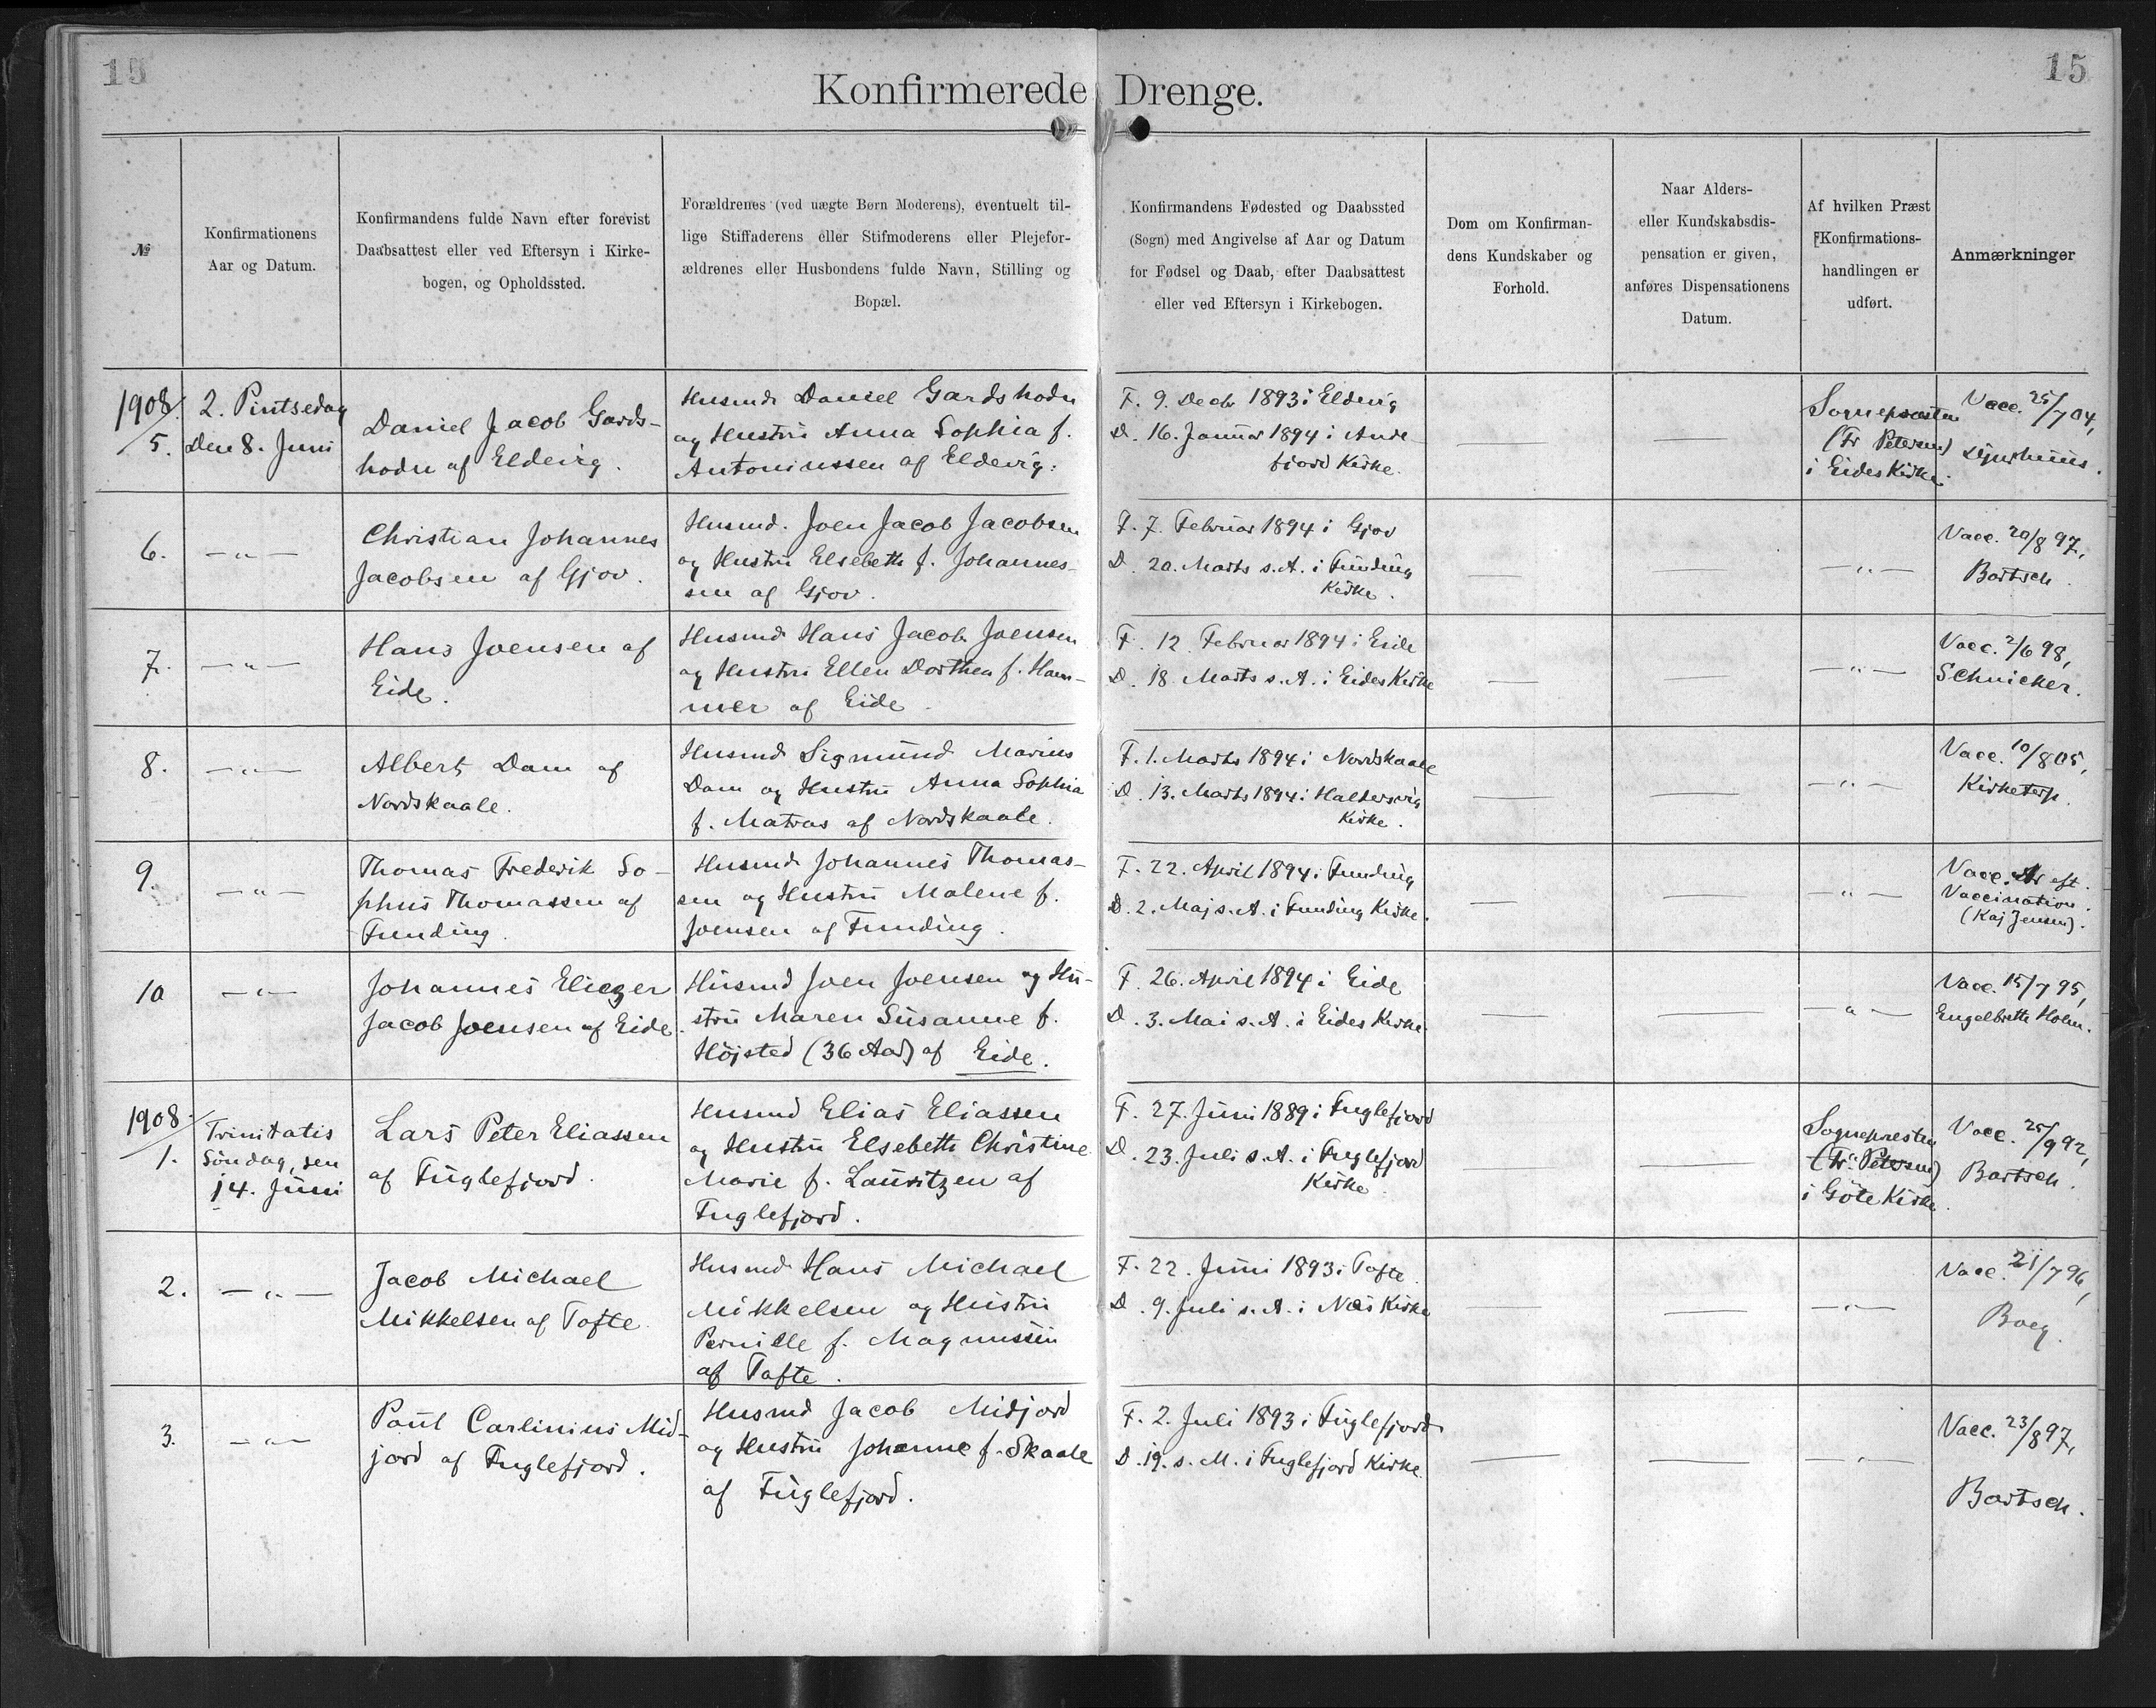 15
15
Konfirmerede Drenge.
№
Konfirmationens
Aar og Datum.
Konfirmandens fulde Navn efter forevist
Daabsattest eller ved Eftersyn i Kirke-
bogen, og Opholdssted.
Forældrenes (ved uægte Børn Moderens), eventuelt til-
lige Stiffaderens eller Stifmoderens eller Plejefor-
ældrenes eller Husbondens fulde Navn, Stilling og
Bopæl.
Konfirmandens Fødested og Daabssted
(Sogn) med Angivelse af Aar og Datum
for Fødsel og Daab, efter Daabsattest
eller ved Eftersyn i Kirkebogen.
Dom om Konfirman-
dens Kundskaber og
Forhold.
Naar Alders-
eller Kundskabsdis-
pensation er given,
anføres Dispensationens
Datum.
Af hvilken Præst
Konfirmations-
handlingen er
udført.
Anmærkninger
1908/
5.
2. Pintsedag
Den 8. Juni
Daniel Jacob Gards-
hodn af Eldevig.
Husmd. Daniel Gardshodn
og Hustru Anna Sophia f.
Antoniussen af Eldevig.
F. 9. Decbr 1893 i Eldevig
D. 16. Januar 1894 i Ande-
fjord Kirke.
Sognepræsten
(Fr Petersen)
i Eides Kirke.
Vacc. 25/7 04,
6.
— „ —
Christian Johannes
Jacobsen af Gjov.
Husmd. Joen Jacob Jacobsen
og Hustru Elsebeth f. Johannes-
sen af Gjov.
F. 7. Februar 1894 i Gjov
D. 20. Marts s. A. i Funding
Kirke.
— „ —
Vacc. 20/8 97,
Bartsch.
7.
— „ —
Hans Joensen af
Eide.
Husmd Hans Jacob Joensen
og Hustru Ellen Dorthea f. Ham-
mer af Eide.
F. 12 Februar 1894 i Eide
D. 18. Marts s. A. i Eides Kirke
— „ —
Vacc. 2/6 98,
Schnicker.
8.
— „ —
Albert Dam af
Nordskaale.
Husmd Sigmund Marius
Dam og Hustru Anna Sophia
f. Matras af Nordskaale.
F. 1. Marts 1894 i Nordskaale
D. 13. Marts 1894 i Haldersvig
Kirke.
— „ —
Vacc. 10/8 05,
Kirketerp.
9.
— „ —
Thomas Frederik So-
phus Thomassen af
Funding.
Husmd Johannes Thomas-
sen og Hustru Malene f.
Joensen af Funding.
F. 22. April 1894 i Funding
D. 2. Maj s. A. i Funding Kirke.
— „ —
Vacc. Ar eft.
Vaccination.
(Kaj Jensen).
10
— „ —
Johannes Eliezer
Jacob Joensen af Eide.
Husmd Joen Joensen og Hu-
stru Maren Susanne f.
Højsted (36 Aar) af Eide.
F. 26. April 1894 i Eide
D. 3. Mai s. A. i Eides Kirke.
— „ —
Vacc. 15/7 95,
Engelbreth Holm.
1908/
1.
Trinitatis
Söndag, den
14. Juni
Lars Peter Eliassen
af Fuglefjord.
Husmd Elias Eliassen
og Hustru Elsebeth Christine
Marie f. Lauritzen af
Fuglefjord.
F. 27. Juni 1889 i Fuglefjord
D. 23. Juli s. A. i Fuglefjord
Kirke.
Sognepresten
(Fr. Petersen)
i Göte Kirke.
Vacc. 25/9 92,
Bartsch.
2.
— „ —
Jacob Michael
Mikkelsen af Tofte.
Husmd Hans Michael
Mikkelsen og Hustru
Pernille f. Magnussen
af Tofte.
F. 22. Juni 1893 i Tofte.
D. 9. Juli s. A. i Næs Kirke
— „ —
Vacc. 21/7 96,
Boeg.
3.
— „ —
Poul Carlinius Mid-
jord af Fuglefjord.
Husmd Jacob Midjord
og Hustru Johanne f. Skaale
af Fuglefjord.
F. 2. Juli 1893 i Fuglefjord
D. 19. s. M. i Fuglefjord Kirke.
— „ —
Vacc. 23/8 97,
Bartsch.